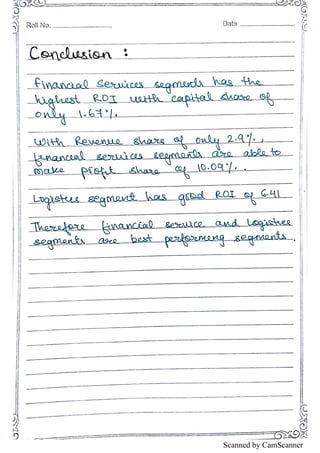 Roll No.
Date
Conclusion :
Financial Services segments has the
highest ROI with capital share of
only 1.67%.
With Revenue share of only 2.9%.,
financial services segments are able to
make profit share of 10.09%.
Logistics segment has good ROI of 6.41
Therefore financial service and Logistics
segments are best performing segments.
Scanned by CamScanner